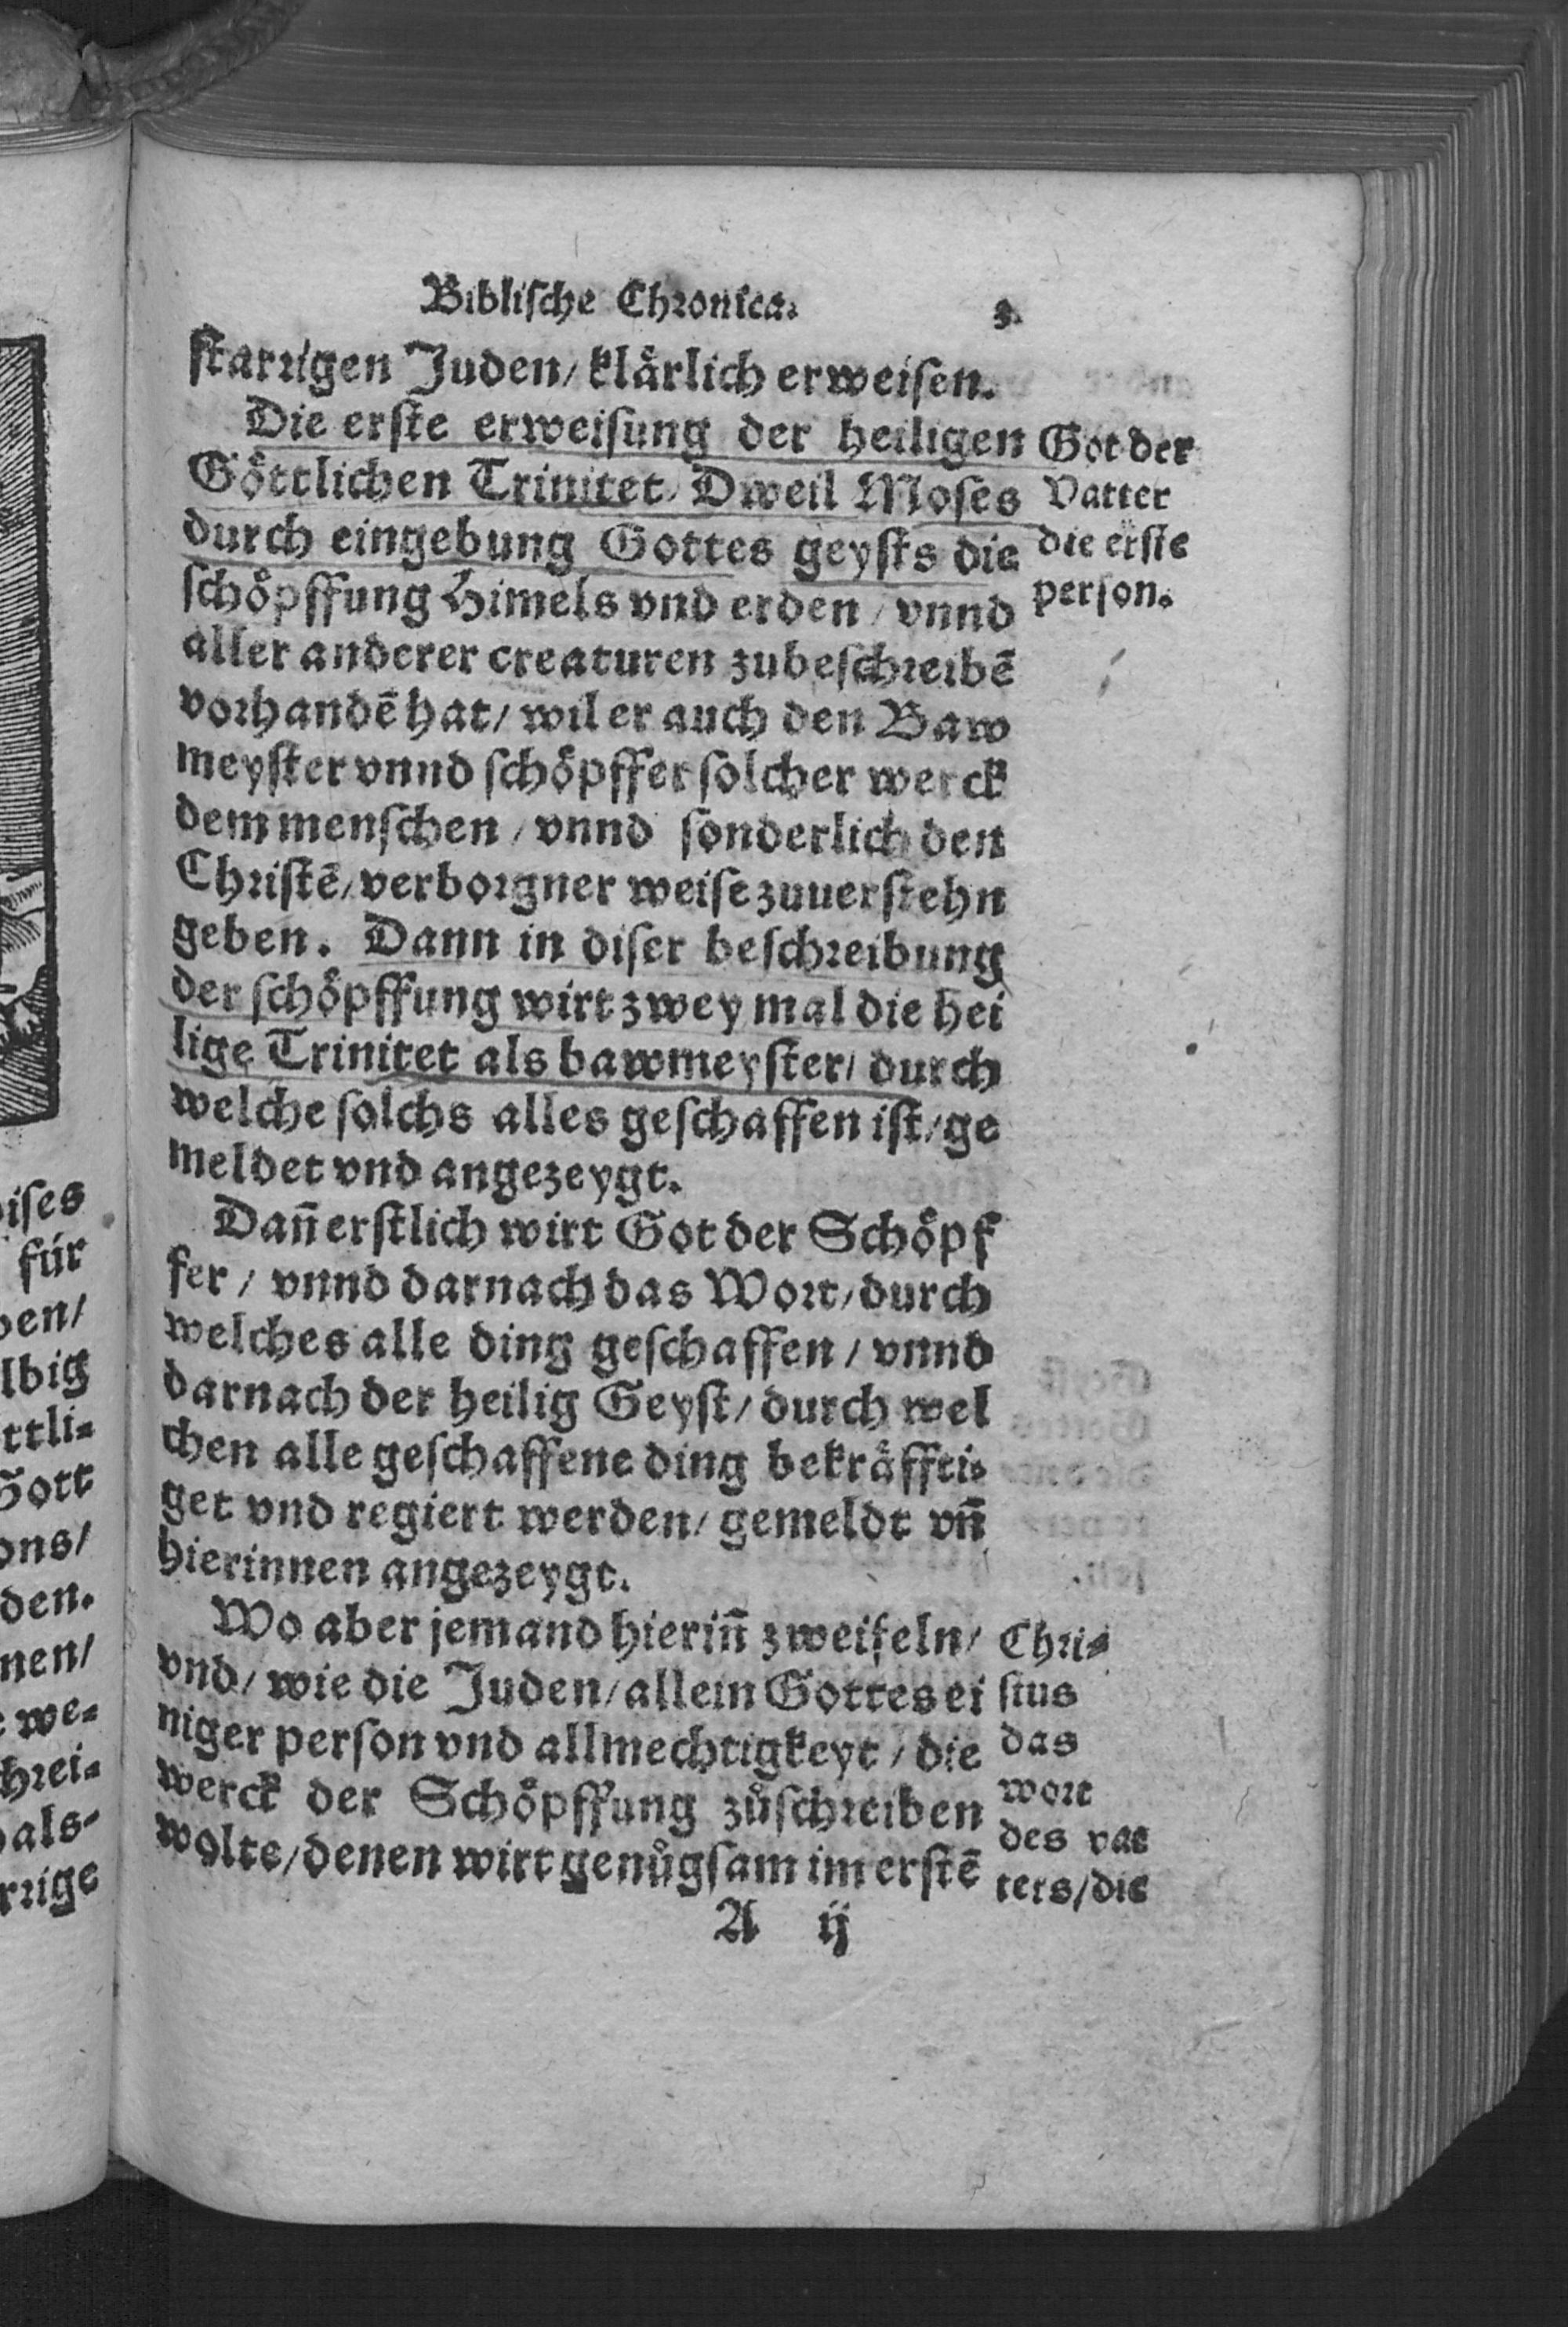 Biblische Chronica.
starrigen Juden/ klårlich erweisen.
Die erste erweisung der heiligen
Göttlichen Trinitet/ Dweil Moses
durch eingebung Gottes geysts die
schöpffung Himels vnd erden / vnnd
aller anderer creaturen zubeschreibē
vorhandē hat/ wil er auch den Baw
meyster vnnd schöpffer solcher werck
dem menschen / vnnd sonderlich den
Christē/ verborgner weise zuuerstehn
geben. Dann in diser beschreibung
der schöpffung wirt zwey mal die hei
lige Trinitet als bawmeyster/ durch
welche solchs alles geschaffen ist/ ge
meldet vnd angezeygt.
Dañ erstlich wirt Got der Schöpf
fer / vnnd darnach das Wort/ durch
welches alle ding geschaffen / vnnd
darnach der heilig Geyst/ durch wel
chen alle geschaffene ding bekräffti-
get vnd regiert werden/ gemeldt vñ
hierinnen angezeygt.
Wo aber jemand hieriñ zweifeln/
vnd/ wie die Juden/ allein Gottes ei
niger person vnd allmechtigkeyt / die
werck der Schöpffung zůschreiben
wolte/ denen wirt genůgsam im erstē
A ij
Got der
Vatter
die erste
person.
Chri-
stus
das
wort
des vat
ters/ die
ises
für
en/
lbig
ttli-
Gott
ons/
den.
nen/
we-
hrei-
als-
rrige